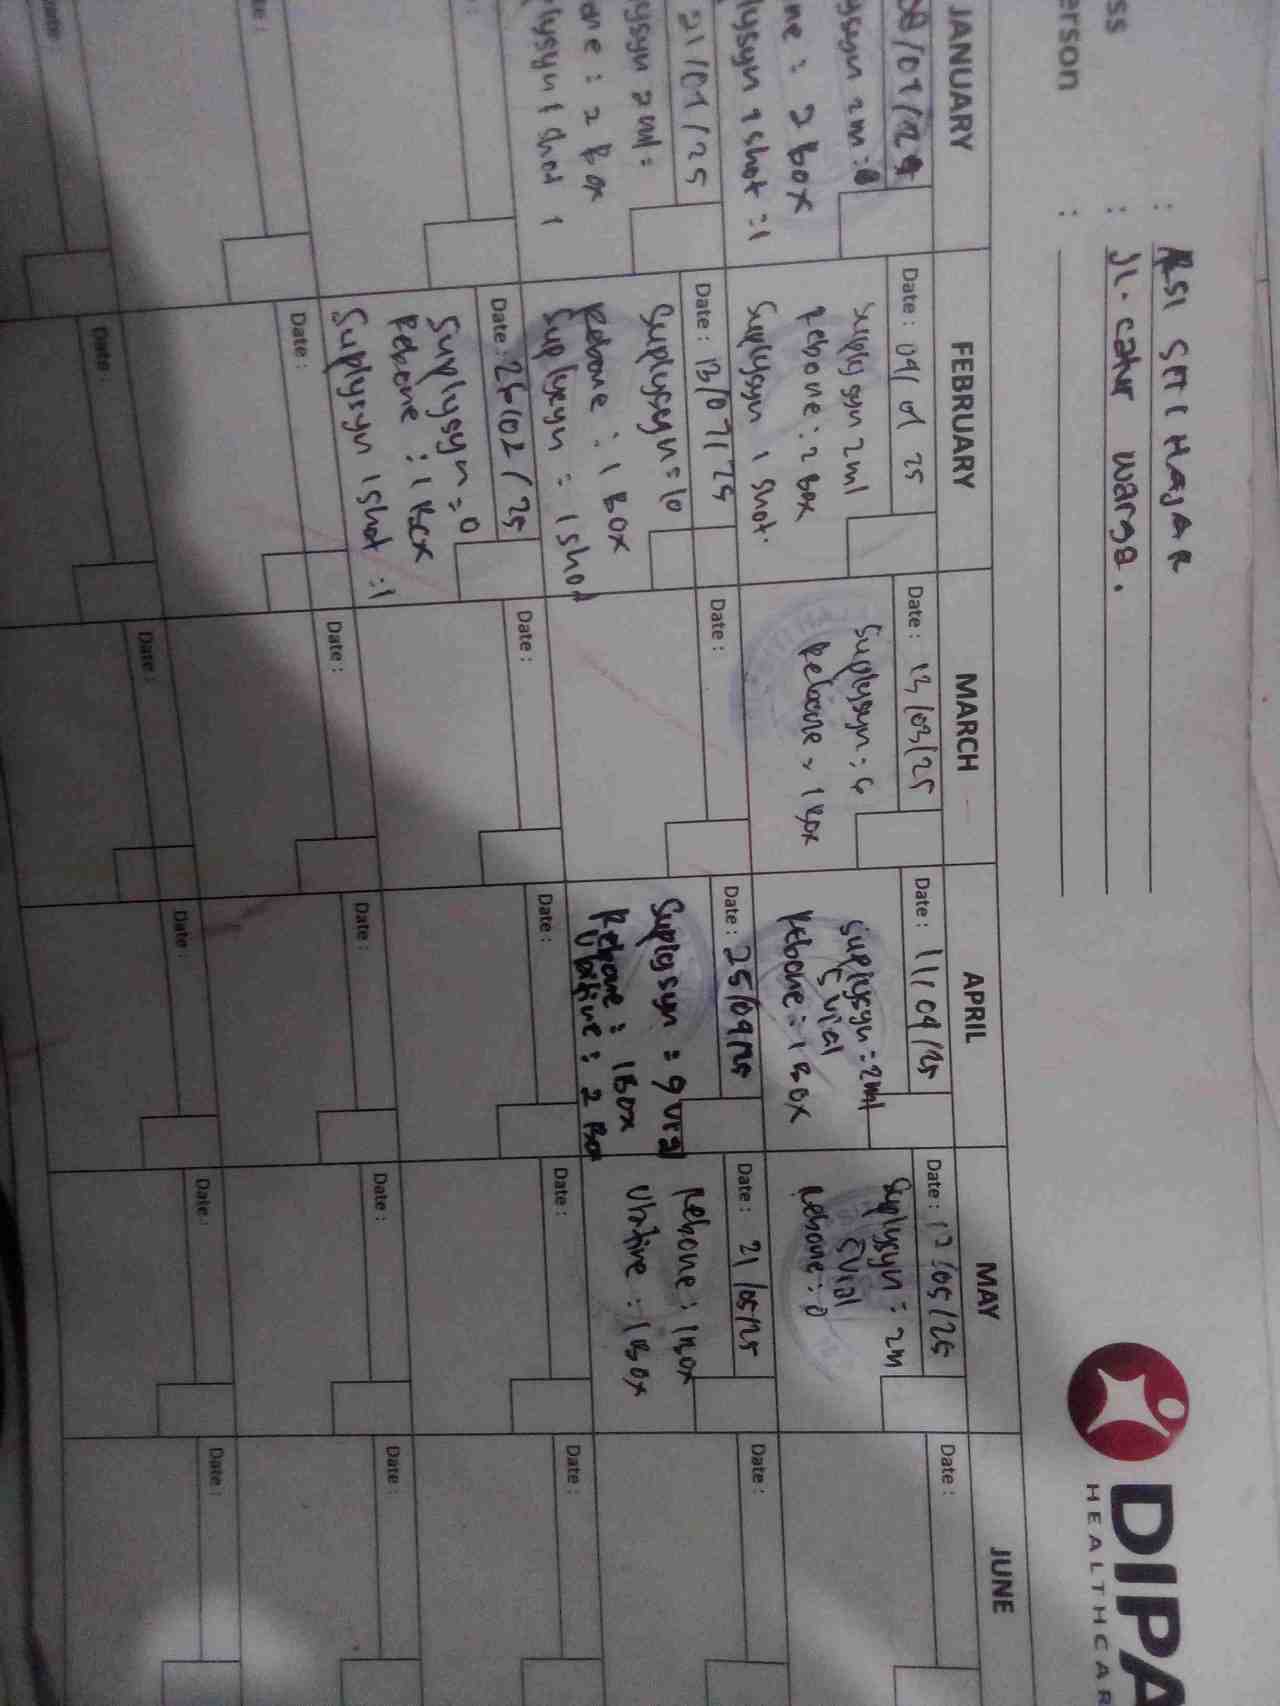 DIPA
HEALTHCAR
ss
: RSI SITI HAJAR
: Jl. catur warga.
erson :
JANUARY
FEBRUARY
MARCH
APRIL
MAY
JUNE
ysyn 2m :
ne : 2 BOX
lysyn 1 shot : 1
Date :
Suplysyn 2ml
Rebone : 2 Box
Suplysyn 1 shot.
Date : 13/03/25
Suplysyn :
Rebone > 1 BOX
Date : 11/04/25
Suplysyn = 2ml
5 vial
Rebone : 1 BOX
Date : 12/05/25
Suplysyn = 2m
5 vial
Rebone : 0
Date :
21/01/25
ysyn 2ml =
one : 2 BOX
plysyn 1 shot 1
Date :
Suplysyn = 10
Rebone : 1 BOX
Suplysyn = 1 shot
Date :
Date : 25/04/25
Suplysyn = 9 vial
Rebone : 1 BOX
Ubifine : 2 Bo
Date : 21/05/25
Rebone : 1 BOX
Ubifine : 1 BOX
Date :
Date : 26/02/25
Suplysyn = 0
Rebone : 1 BOX
Suplysyn 1 shot : 1
Date :
Date :
Date :
Date :
te :
Date :
Date :
Date :
Date :
Date :
Date :
Date :
Date :
Date :
Date :